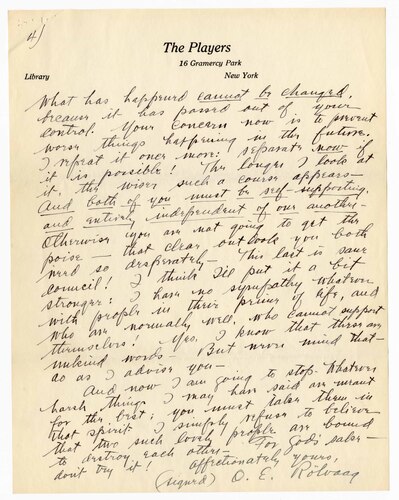 4)
The Players
16 Gramercy Park
Library New York
What has happened cannot be changed,
because it has passed out of your
control. Your concern now is to prevent
worse things happening in the future.
I repeat it once more: separate now if
it is possible! The longer I look at
it, the wiser such a course appears—
And both of you must be self-supporting,
and entirely independent of one another—
Otherwise you are not going to get the
poise — that clear outlook you both
need so desperately — This last is sane
council! I think I'll put it a bit
stronger: I have no sympathy whatever
with people in their prime of life, and
who are normally well, who cannot support
themselves! Yes, I know that these are
unkind words — But never mind that —
do as I advise you —
And now I am going to stop. Whatever
harsh things I may have said are meant
for the best; you must take them in
that spirit. I simply refuse to believe
that two such lovely people are bound
to destroy each other — For God's sake —
don't try it! Affectionately yours,
(signed) O. E. Rölvaag